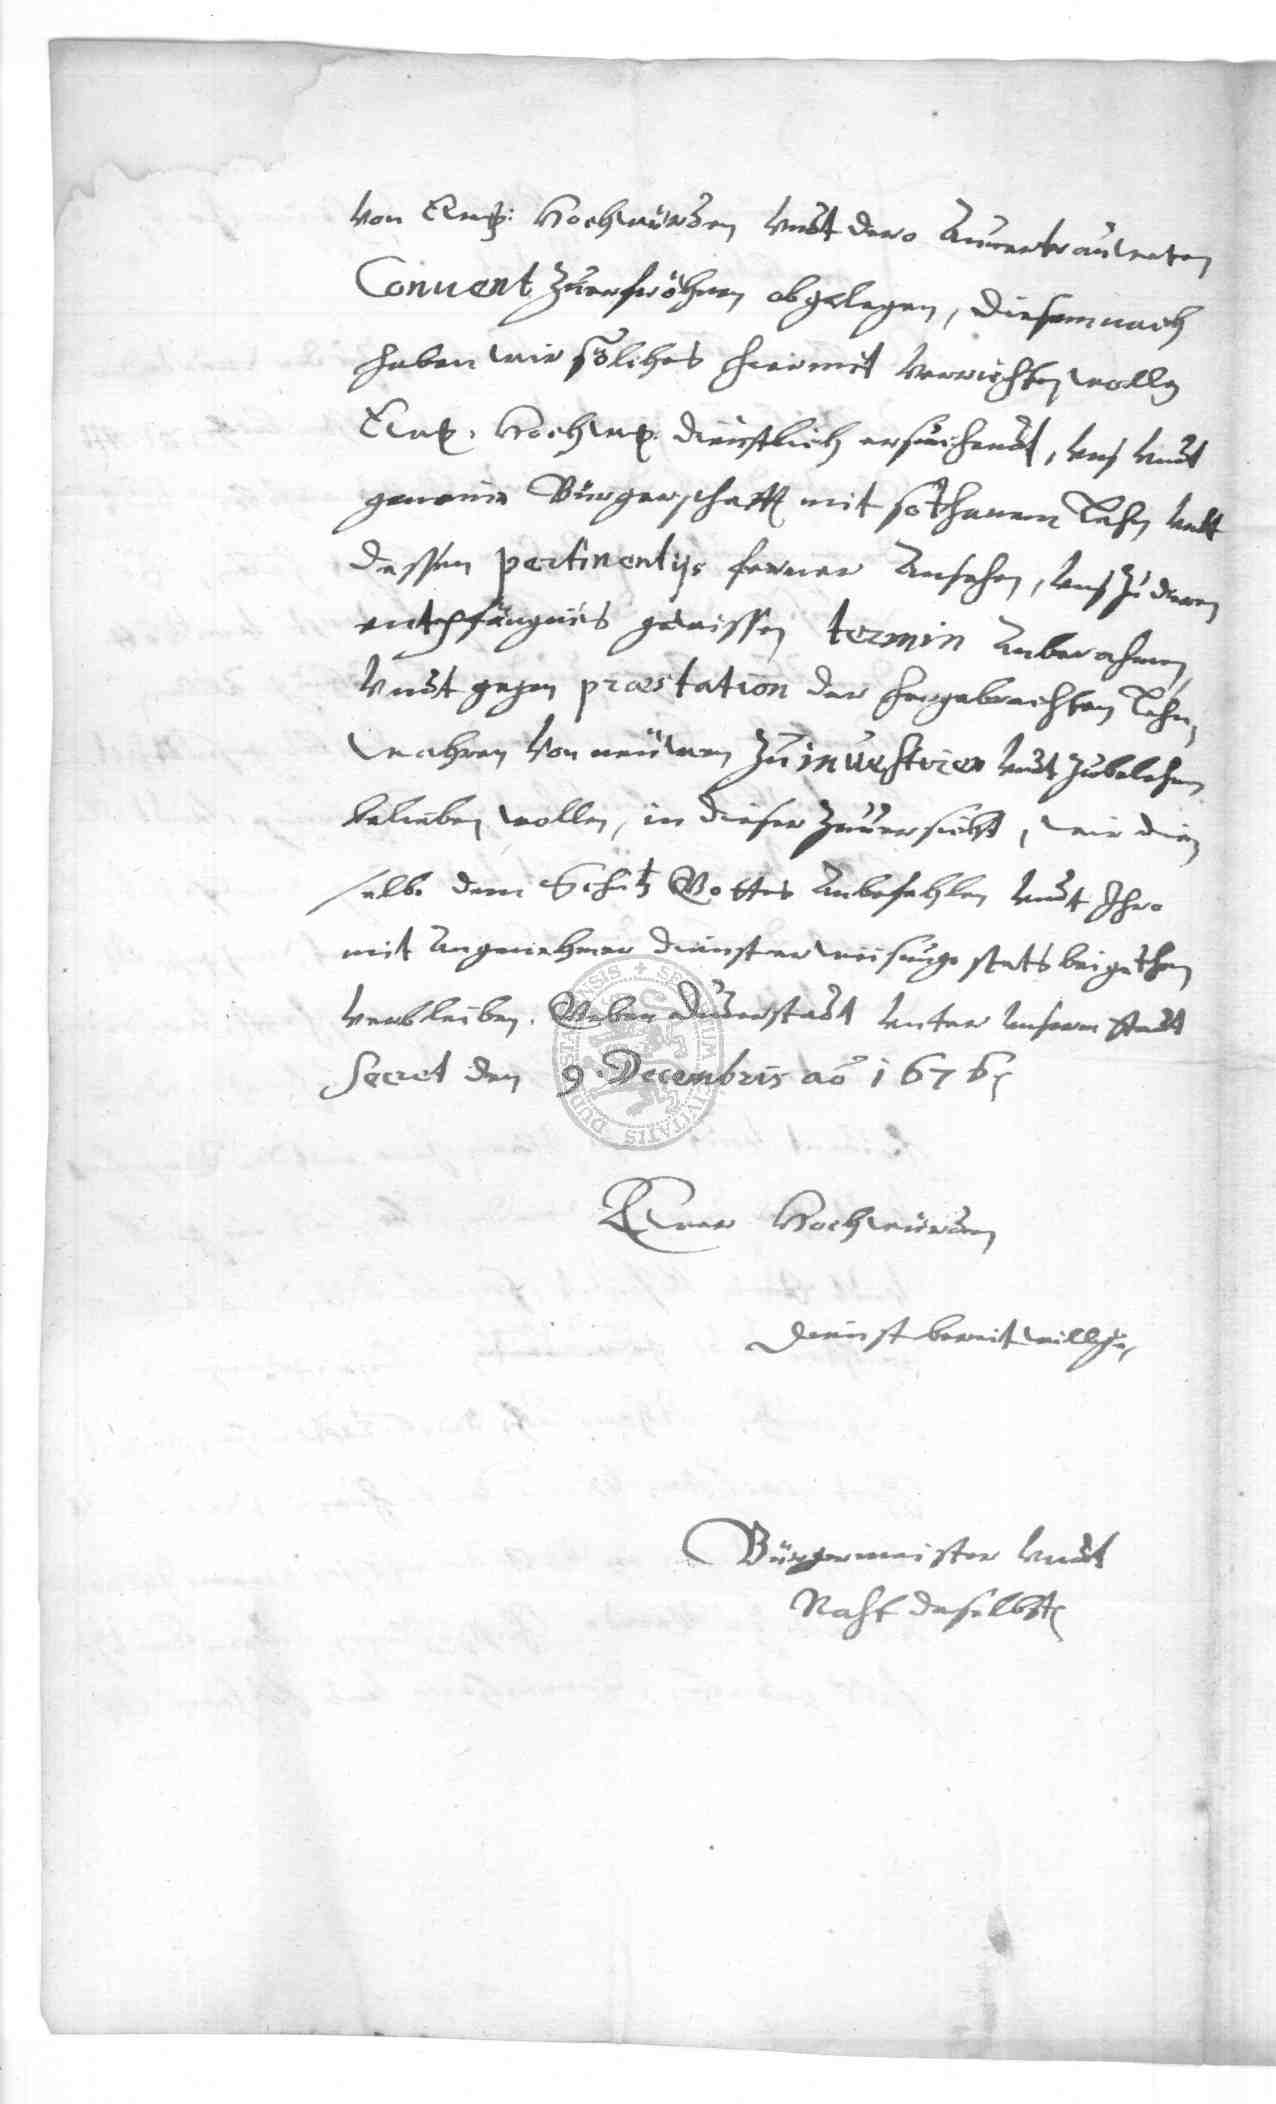 von Ewer Hochwürden undt dero Anvertrauweten
Convent zuersuchen obgelegen, diesemnach
haben wir solches hiermit verrichten wollen
Ewr. Hochwr. dienstlich ersuchendt, uns undt
gemeine Bürgerschafft mit sothanem Lehn undt
dessen pertinentijs ferner Ansehen, uns zu deren
entpfängnüs gewissen termin Anberahmen,
undt gegen præstation der hergebrachten Lehn,
wahren von neuwen zu investiren undt zubelehnen
belieben wollen, in dieser zuversicht, wir die
selbe dem Schutz Gottes Anbefehlen undt Ihro
mit angenehmer dienst erweisung stets beigethan
verbleiben. Geben Duderstadt unter unserm Stadt
Secret den 9. Decembris aō 1676
Ewer Hochwürden
dienst bereitwillige,
Bürgermeister undt
Raht daselbst
SECRETUM CIVITATIS DUDERSTADENSIS